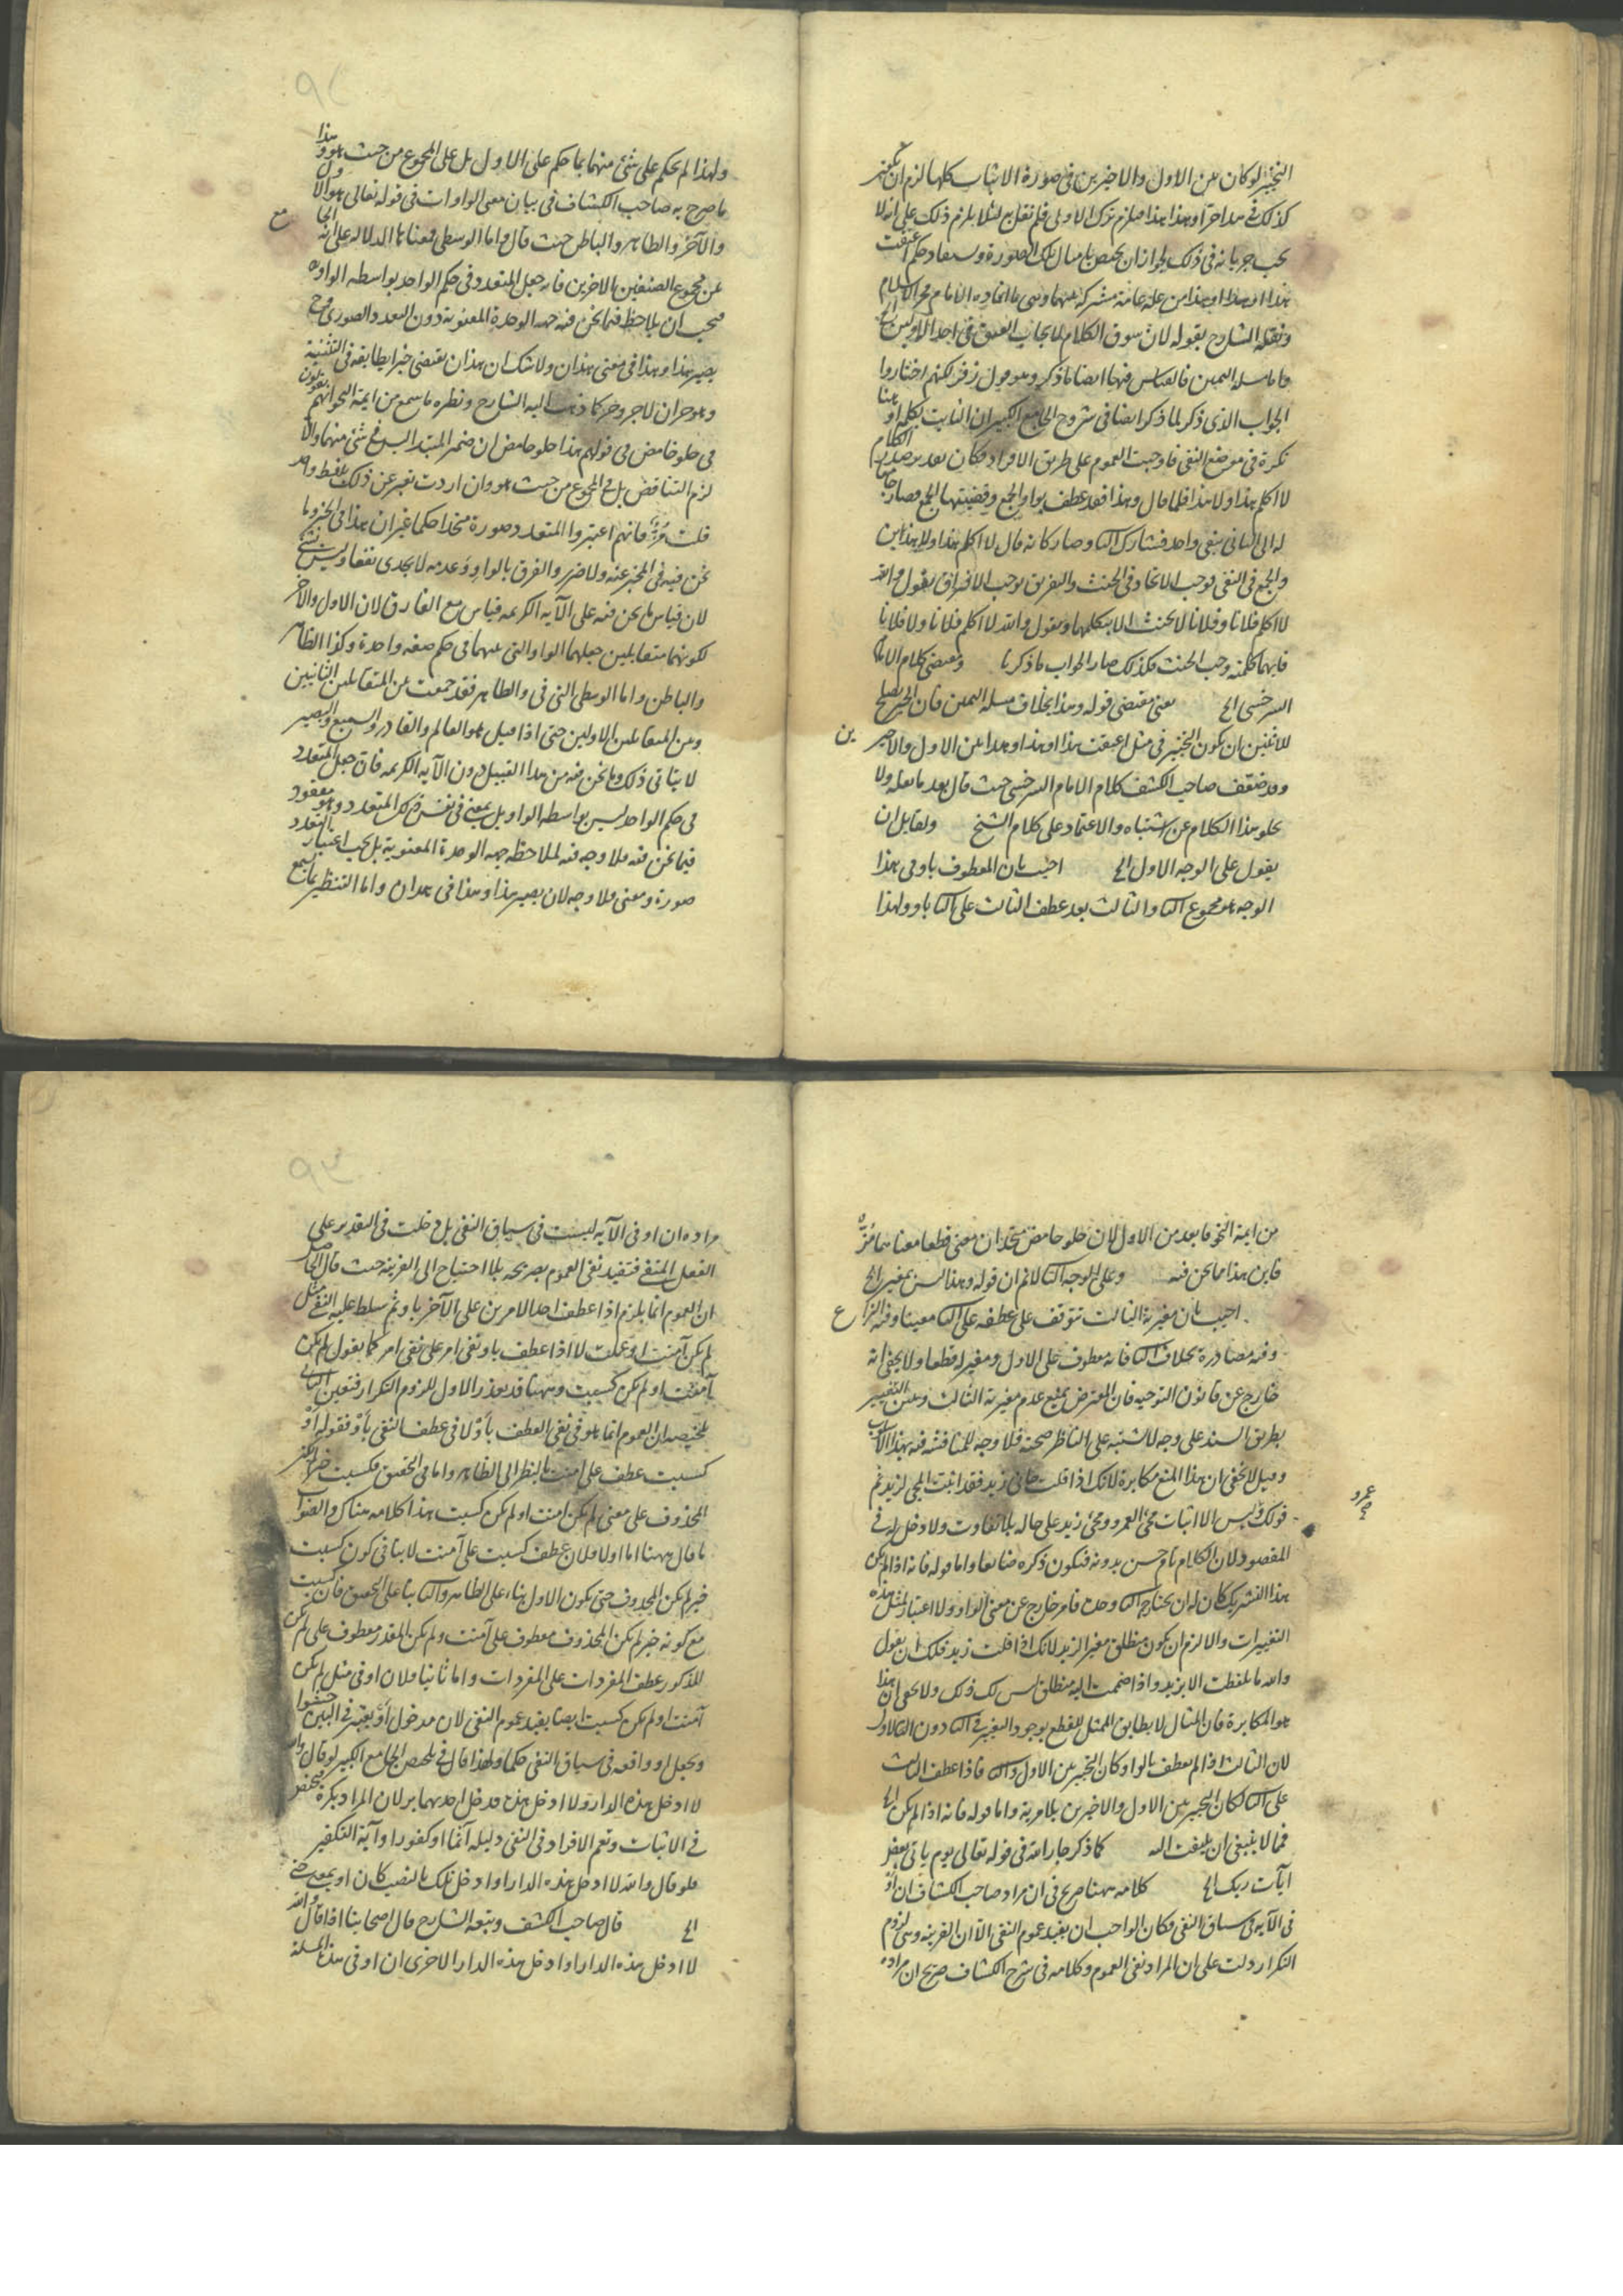 التخيير لو كان بين الاول والاخيرين في صورة الاثبات كلها لزم ان يكون
كذلك في هذا حر او هذا وهذا فيلزم ترك الاولى فلم نقل به لئلا يلزم ذلك على انه لا
يجب جريانه في ذلك لجواز ان يختص بامثال تلك الصورة ويستفاد حكم اعتقت
هذا او هذا وهذا من علة عامة مشتركة بينهما وهي ما افاده الامام فخر الاسلام
ونقله الشارح بقوله لان سوق الكلام لايجاب العتق في احد الاولين الخ
واما مسئلة اليمين فالقياس فيها ايضا ما ذكر وهو قول زفر لكنهم اختاروا
الجواب الذي ذكر لما ذكر ايضا في شروح الجامع الكبير ان الثابت بكلمة او هنا
نكرة في موضع النفي فاوجبت العموم على طريق الافراد فكان تقدير صدر الكلام
لا اكلم هذا ولا هذا فلما قال وهذا فقد عطف بواو الجمع وقضيتها الجمع فصار جامعا
له الى الثاني بنفي واحد فشارك الثا وصار كانه قال لا اكلم هذا ولا هذين
والجمع في النفي يوجب الاتحاد في الحنث والتفريق يوجب الافتراق يقول والله
لا اكلم فلانا وفلانا لا يحنث الا بتكلمهما ويقول والله لا اكلم فلانا ولا فلانا
فايهما كلمته وجب الحنث فكذلك صار الجواب ما ذكرنا ومقتضى كلام الامام
السرخسي الخ يعني مقتضى قوله وهذا بخلاف مسئلة اليمين فان الخبر يصلح
للاثنين ان يكون التخيير في مثل اعتقت هذا او هذا وهذا بين الاول والاخيرين
وقد ضعف صاحب الكشف كلام الامام السرخسي حيث قال بعد ما نقله ولا
يخلو هذا الكلام عن اشتباه والاعتماد على كلام الشيخ ولقائل ان
يقول على الوجه الاول الخ اجيب بان المعطوف باو في هذا
الوجه هو مجموع الثا والثالث بعد عطف الثالث على الثا باو ولهذا
ولهذا لم يحكم على شئ منهما بما حكم على الاول بل على المجموع من حيث هو وهذا
ما صرح به صاحب الكشاف في بيان معنى الواوات في قوله تعالى هو الاول
والآخر والظاهر والباطن حيث قال واما الوسطى فمعناها الدلالة على انه الجامع
بين مجموع الصفتين بالاخرين فانه جعل المتعدد في حكم الواحد بواسطة الواو
فيجب ان يلاحظ فيما نحن فيه جهة الوحدة المعنوية دون التعدد الصوري فح
يصير هذا وهذا في معنى هذان ولا شك ان هذان يقتضي خبرا يطابقه في التثنية
وهو حران لا حر وحر كما ذهب اليه الشارح ونظره ما سمع من ايمة النحو انهم يقولون
في حلو حامض في قولهم هذا حلو حامض ان ضمير المبتدا ليس في شئ منهما والا
لزم التناقض بل في المجموع من حيث هو وان اردت تعبر عن ذلك بلفظ واحد
قلت مز فانهم اعتبروا المتعدد صورة متحدا حكما غير ان هذا في الخبر وما
نحن فيه في المخبر عنه ولا ضرر والفرق بالواو وعدمه لا يجدي نفعا وليس بشئ
لان قياس ما نحن فيه على الآية الكريمة قياس مع الفارق لان الاول والآخر
لكونهما متقابلين جعلهما الواو التي بينهما في حكم صفة واحدة وكذا الظاهر
والباطن واما الوسطى التي في والظاهر فقد جمعت بين المتقابلين الثانيين
وبين المتقابلين الاولين حتى اذا قيل هو العالم والقادر والسميع والبصير
لا يتأتى ذلك وما نحن فيه من هذا القبيل دون الآية الكريمة فان جعل المتعدد
في حكم الواحد ليس بواسطة الواو بل بمعنى في نفس ذلك المتعدد وهو مفقود
فيما نحن فيه فلا وجه فيه لملاحظة جهة الوحدة المعنوية بل يجب اعتبار التعدد
صورة ومعنى فلا وجه لان يصير هذا وهذا في هذان واما التنظير بما سمع
من ايمة النحو فابعد من الاول لان حلو حامض متحدان معنى قطعا معناهما مز
فاين هذا مما نحن فيه وعلى الوجه الثا لانم ان قوله وهذا ليس بمغير الخ
اجيب بان مغيرية الثالث تتوقف على عطفه على الثا معينا وفيه النزاع
وفيه مصادرة بخلاف الثا فانه معطوف على الاول ومغير له قطعا ولا يخفى انه
خارج عن قانون التوجيه فان المعترض يمنع عدم مغيرية الثالث وبين التغيير
بطريق السند على وجه لا شبهة على الناظر صحته فلا وجه للمناقشة فيه بهذا
وقيل لا يخفى ان هذا المنع مكابرة لانك اذا قلت جاني زيد فقد اثبت المجئ لزيد ثم
قولك وليس الا اثبات مجئ العمرو ومجئ زيد على حاله بلا تفاوت ولا دخل له في
المقصود لان الكلام تام حسن بدونه فيكون ذكره ضايعا واما قوله فانه اذا لم يكن
هذا التشريك كان له ان يختار الثا وحده فامر خارج عن معنى الواو ولا اعتبار لمثل هذه
التغييرات والا لزم ان يكون منطلق مغير الزيد لانك اذا قلت زيد فلك ان يقول
والله ما تلفظت الا بزيد واذا ضممت اليه منطلق ليس لك ذلك ولا يخفى ان هذا
هو المكابرة فان المثال لا يطابق الممثل للقطع بوجود التغيير في الثا دون الاول
لان الثالث اذا لم يعطف بالواو كان التخيير بين الاول والثا فاذا عطف الثالث
على الثا كان التخيير بين الاول والاخيرين بلا مرية واما قوله فانه اذا لم يكن الخ
فمما لا ينبغي ان يلتفت اليه كما ذكر جار الله في قوله تعالى يوم ياتي بعض
آيات ربك الخ كلامه ههنا صريح في ان مراد صاحب الكشاف ان او
في الآية في سياق النفي فكان الواجب ان يفيد عموم النفي الا ان القرينة وهي لزوم
التكرار دلت على ان المراد نفي العموم وكلامه في شرح الكشاف صريح ان مراده
مراده ان او في الآية ليست في سياق النفي بل دخلت في التقدير على
الفعل المنفي فتفيد نفي العموم بصريحه بلا احتياج الى القرينة حيث قال الحاصل
ان العموم انما يلزم اذا عطف احد الامرين على الآخر باو ثم سلط عليه النفي مثل
لم يكن آمنت او عملت لا اذا عطف باو نفي امر على نفي امر كما يقول لم يكن
آمنت او لم يكن كسبت وههنا قد يعذر الاول للزوم التكرار فتعين الثاني
تلخيصه ان العموم انما هو في نفي العطف بأو لا في عطف النفي بأو فقوله او
كسبت عطف على آمنت بالنظر الى الظاهر واما في التحقيق فكسبت خبر لم يكن
المحذوف على معنى لم يكن آمنت او لم يكن كسبت هذا كلامه هناك والصواب
ما قال ههنا اما اولا فلان عطف كسبت على آمنت لا ينافي كون كسبت
خبر لم يكن المحذوف حتى يكون الاول بناء على الظاهر والثا بنا على التحقيق فان كسبت
مع كونه خبر لم يكن المحذوف معطوف على آمنت ولم يكن المقدر معطوف على لم يكن
المذكور عطف المفردات على المفردات واما ثانيا فلان او في مثل لم يكن
آمنت او لم يكن كسبت ايضا يفيد عموم النفي لان مدخول او يعتبر في البين
ويجعل او واقعة في سياق النفي حكما ولهذا قال في تلخيص الجامع الكبير لو قال والله
لا ادخل هذه الدار ولا ادخل هذه فدخل احديهما بر لان المراد بكرة فيخص
في الاثبات وتعم الافراد في النفي دليله آثما او كفورا وآية التكفير
فلو قال والله لا ادخل هذه الدار او ادخل تلك بالنصب كان او بمعنى حتى
الخ قال صاحب الكشف وتبعه الشارح قال اصحابنا اذا قال والله
لا ادخل هذه الدار او ادخل هذه الدار الاخرى ان او في هذه المسئلة